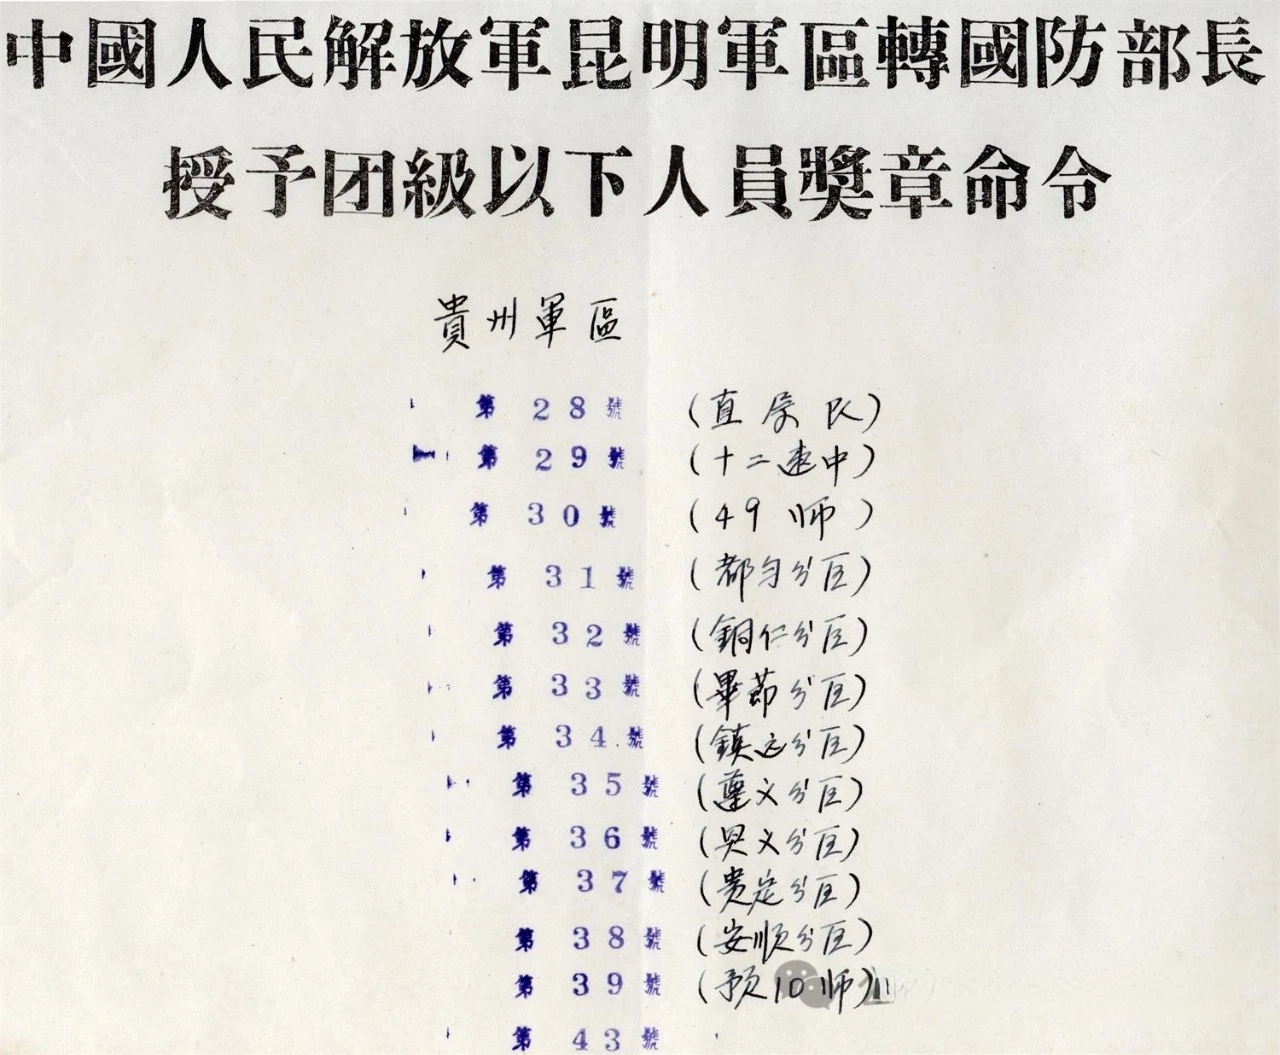 中國人民解放軍昆明軍區轉國防部長
授予团級以下人員獎章命令
貴州軍區
第28號 (直属队)
第29號 (十二速中)
第30號 (49师)
第31號 (都匀分区)
第32號 (銅仁分区)
第33號 (畢節分区)
第34號 (鎮远分区)
第35號 (遵义分区)
第36號 (兴义分区)
第37號 (贵定分区)
第38號 (安顺分区)
第39號 (预10师)
第43號